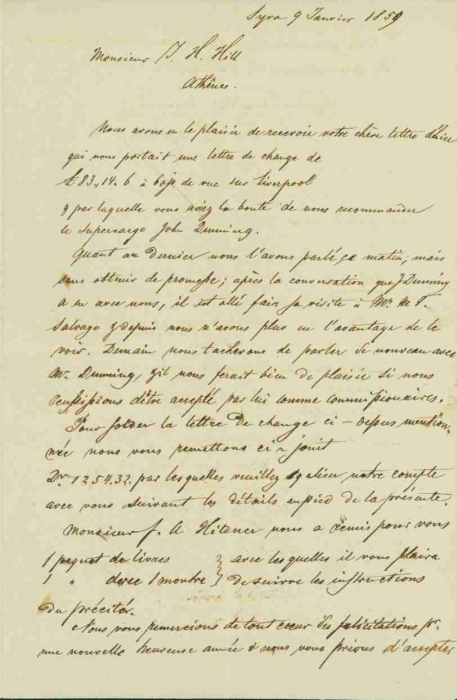 Syra 9 Janvier 1859
Monsieur J. H. Hill
Athènes.
Nous avons eu le plaisir de recevoir votre chère lettre d'hier
qui nous portait une lettre de change de
£ 83,, 14. 6 à 60js de vue sur Liverpool
& par laquelle vous aviez la bonté de nous recommander
le Supercargo John Dunning.
Quant au dernier nous l'avons parlé ce matin; mais
sans obtenir de promesse; après la conversation que J Dunning
a eu avec nous, il est allé faire sa visite à Mr.
Salvago & depuis nous n'avons plus eu l'avantage de le
voir. Demain nous tacherons de parler de nouveau avec
Mr. Dunning, & il nous ferait bien de plaisir si nous
réussissions d'être accepté par lui comme commissionaires.
Pour solder la lettre de change ci-dessus mention-
née nous vous remettons ci-joint
Dr. 1254.32. par lesquelles veuillez egaliser notre compte
avec vous suivant les détails au pied de la présente.
Monsieur J. A Hildner nous a remis pour vous
1 paquet de livres } avec lesquelles il vous plaira
1 " avec 1 montre } de suivre les instructions
du précité.
Nous vous remercions de tout coeur des felicitations pr.
une nouvelle heureuse année & nous vous prions d'accepter